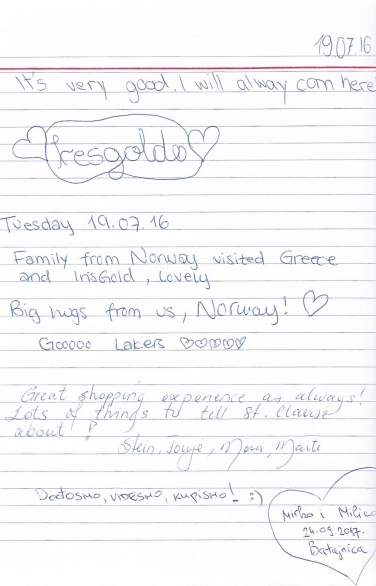 19.07.16
It's very good. I will alway com here
Iresgoldo
Tuesday 19.07.16
Family from Norway visited Greece
and IrisGold, Lovely
Big hugs from us, Norway! ♡
Gooooo Lakers ♡♡♡♡♡
Great shopping experience as always!
Lots of things to tell St. Clause
about!
Stein, Tonje, Mona, Marte
DOĐOSMO, VIDESMO, KUPISMO! :)
Mirko i Milica
24.09.2017.
Batajnica